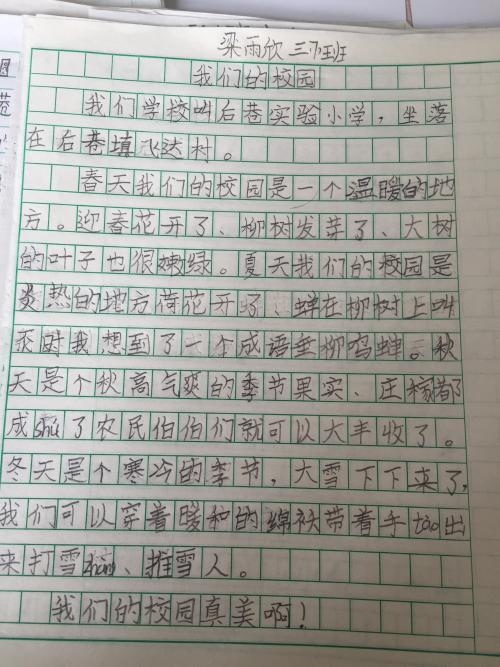 梁雨欣 三(1)班
我们的校园
我们学校叫后巷实验小学，坐落
在后巷填飞达村。
春天我们的校园是一个温暖的地
方。迎春花开了、柳树发芽了、大树
的叶子也很嫩绿。夏天我们的校园是
炎热的地方荷花开了、蝉在柳树上叫
来时我想到了一个成语垂柳鸣蝉。秋
天是个秋高气爽的季节果实、庄稼都
成shú了农民伯伯们就可以大丰收了。
冬天是个寒冷的季节，大雪下下来了，
我们可以穿着暖和的绵袄带着手tào出
来打雪zhàng、推雪人。
我们的校园真美啊！